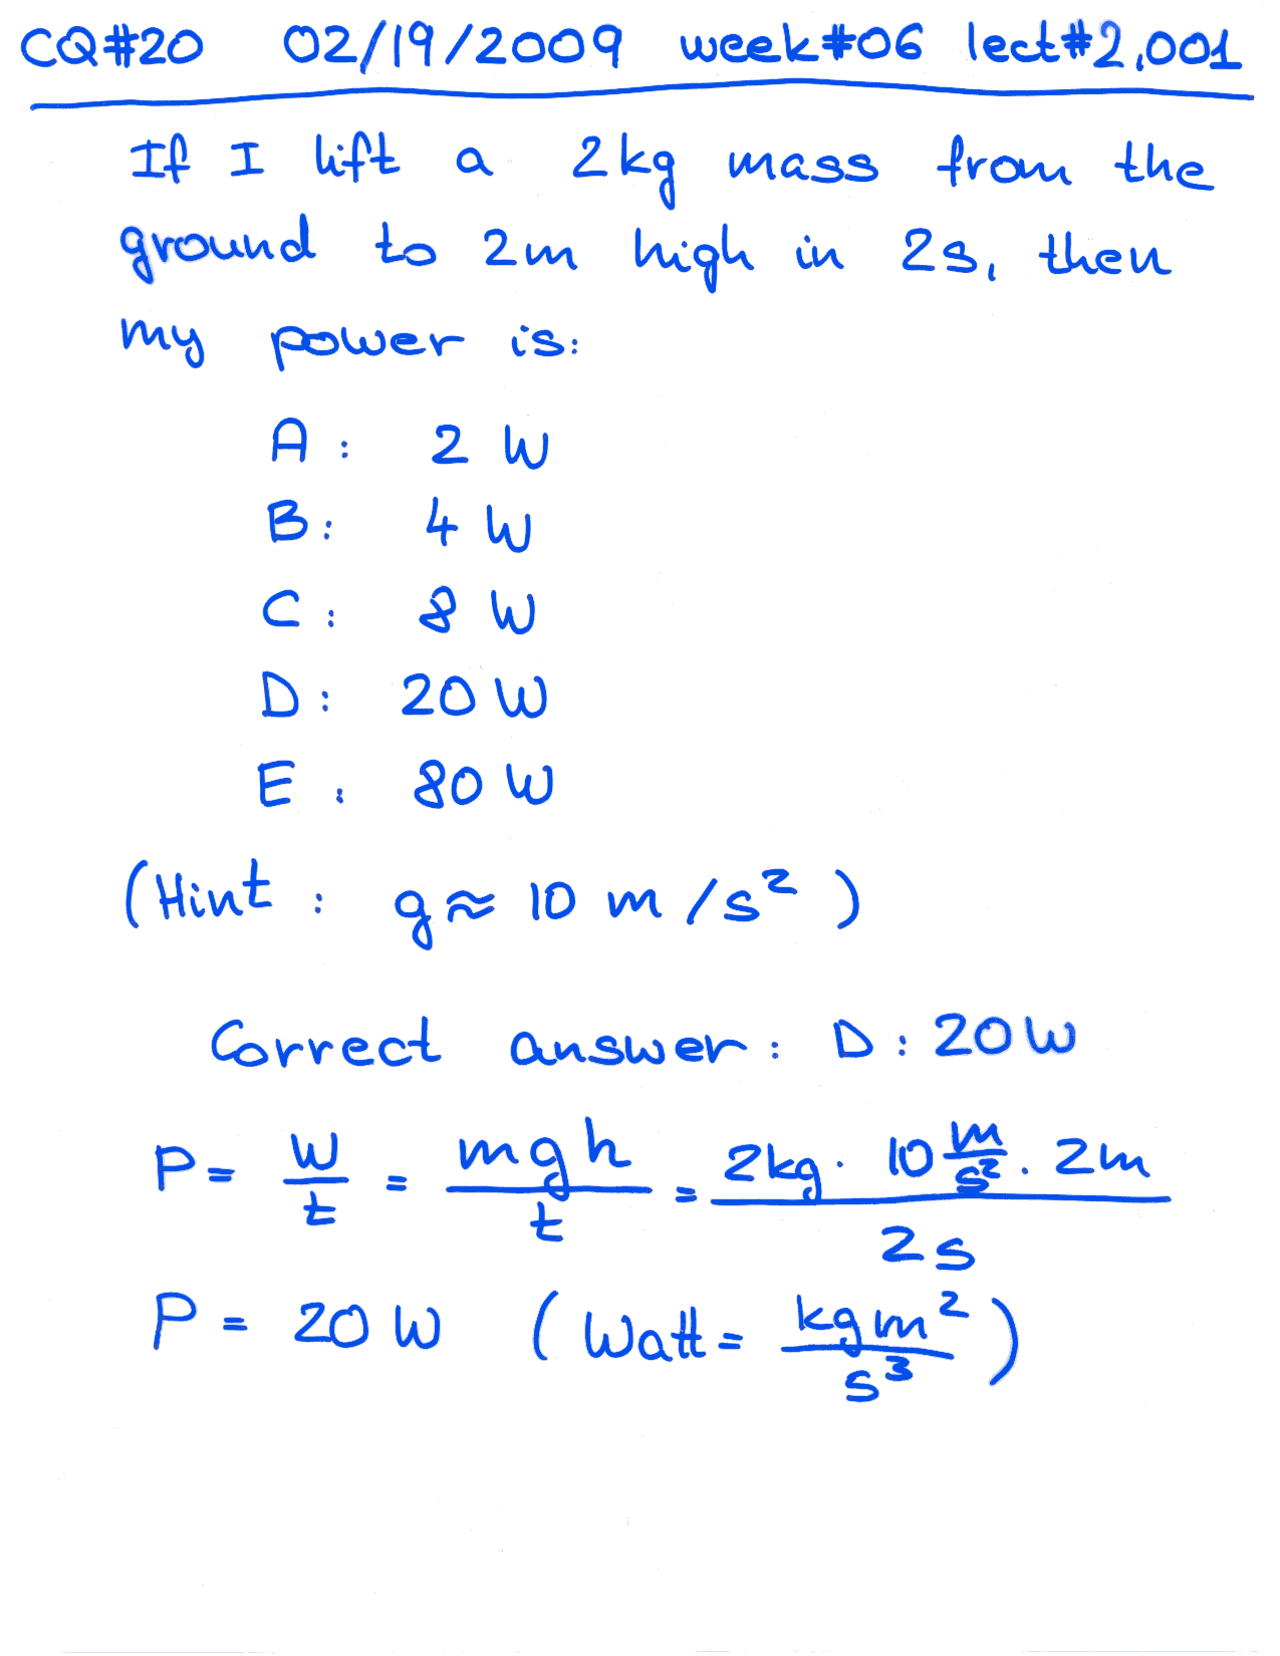 CQ#20 02/19/2009 week#06 lect#2,001
If I lift a 2kg mass from the
ground to 2m high in 2s, then
my power is:
A: 2 W
B: 4 W
C: 8 W
D: 20 W
E: 80 W
(Hint: g≈ 10 m/s²)
Correct answer: D: 20W
P = W/t = mgh/t = 2kg · 10 m/s² · 2m / 2s
P = 20 W (Watt = kgm²/s³)